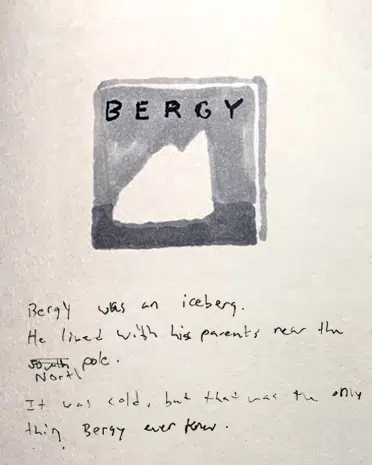 BERGY
Bergy was an iceberg.
He lived with his parents near the
South pole.
North
It was cold, but that was the only
thing Bergy ever knew.